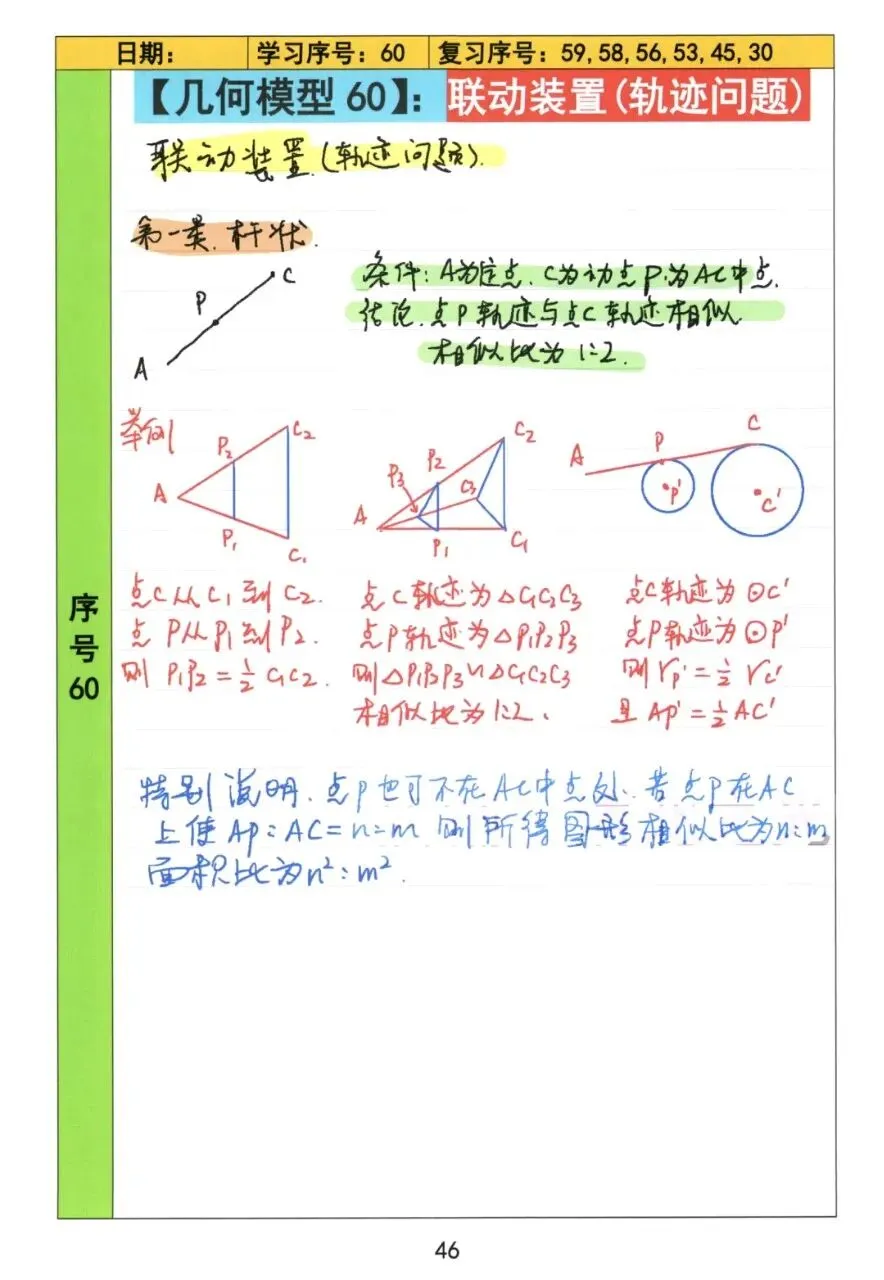 日期: 学习序号: 60 复习序号: 59, 58, 56, 53, 45, 30
【几何模型 60】: 联动装置(轨迹问题)
联动装置.(轨迹问题).
第一类.杆状.
A P C
条件: A为定点. C为动点 P.为AC中点.
结论.点P轨迹与点C轨迹相似.
相似比为1:2.
举例
A P2 C2 P1 C1
A P3 P2 C2 C3 P1 C1
A P C P' C'
点C从C1到C2.
点P从P1到P2.
则 P1P2=½C1C2.
点C轨迹为△C1C2C3
点P轨迹为△P1P2P3
则△P1P2P3∽△C1C2C3
相似比为1:2.
点C轨迹为⊙C'
点P轨迹为⊙P'
则 rp'=½rc'
且 AP'=½AC'
序号60
特别说明.点P也可不在AC中点处.若点P在AC
上使AP:AC=n:m 则所得图形相似比为n:m
面积比为n²:m².
46